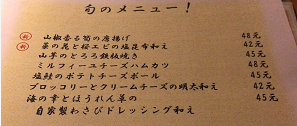 旬のメニュー！
新 山椒香る筍の唐揚げ 48元
新 菜の花と桜エビの塩昆布和え 42元
山芋のとろろ鉄板焼き 45元
ミルフィーユチーズハムカツ 48元
塩鮭のポテトチーズボール 45元
ブロッコリーとクリームチーズの明太和え 42元
海の幸とほうれん草の 45元
自家製わさびドレッシング和え